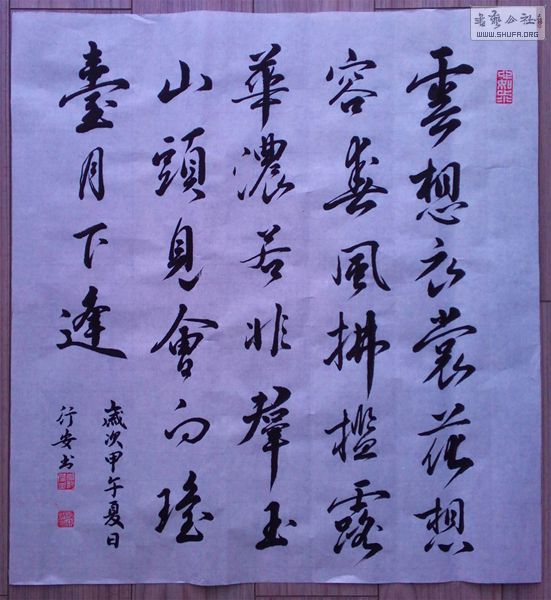 雲想衣裳花想
容春風拂檻露
華濃若非羣玉
山頭見會向瑤
臺月下逢
歲次甲午夏日
行安书
书艺公社
WWW.SHUFA.ORG